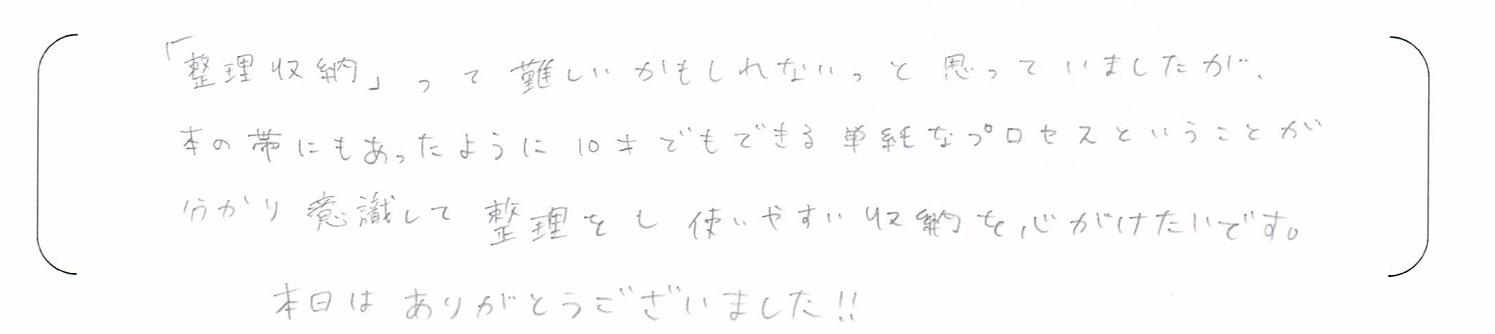 「整理収納」って難しいかもしれないっと思っていましたが、
本の帯にもあったように10才でもできる単純なプロセスということが
分かり意識して整理をし使いやすい収納を心がけたいです。
本日はありがとうございました!!